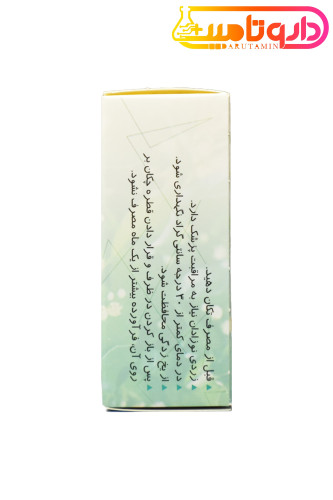 داروتامین
DARUTAMIN
▲ قبل از مصرف تکان دهید.
▲ زردی نوزادان نیاز به مراقبت پزشک دارد.
▲ در دمای کمتر از ۳۰ درجه سانتی گراد نگهداری شود.
▲ از یخ زدگی محافظت شود.
▲ پس از باز کردن در ظرف و قرار دادن قطره چکان بر
روی آن، فرآورده بیشتر از یک ماه مصرف نشود.